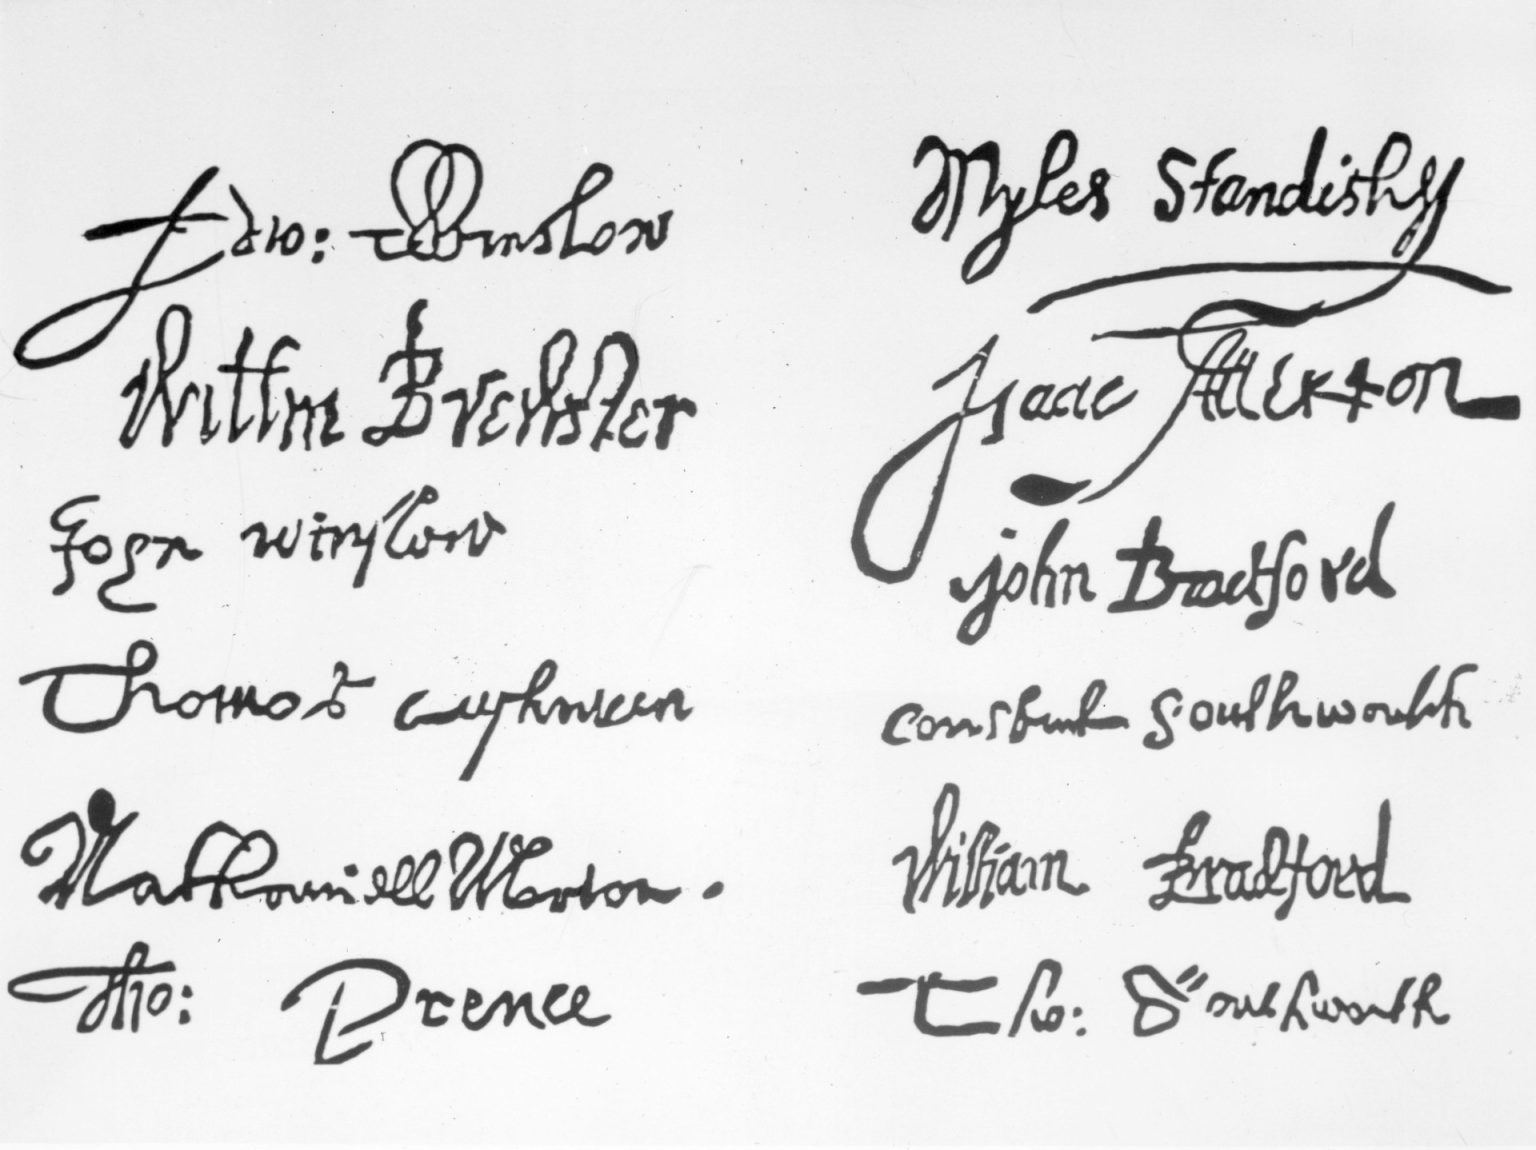 Edw: Winslow
Willm Brewster
John Winslow
Thomas Cushman
Nathaniell Morton.
Tho: Prence
Myles Standish
Isaac Allerton
john Bradford
Constant Southworth
William Bradford
Tho: Southworth